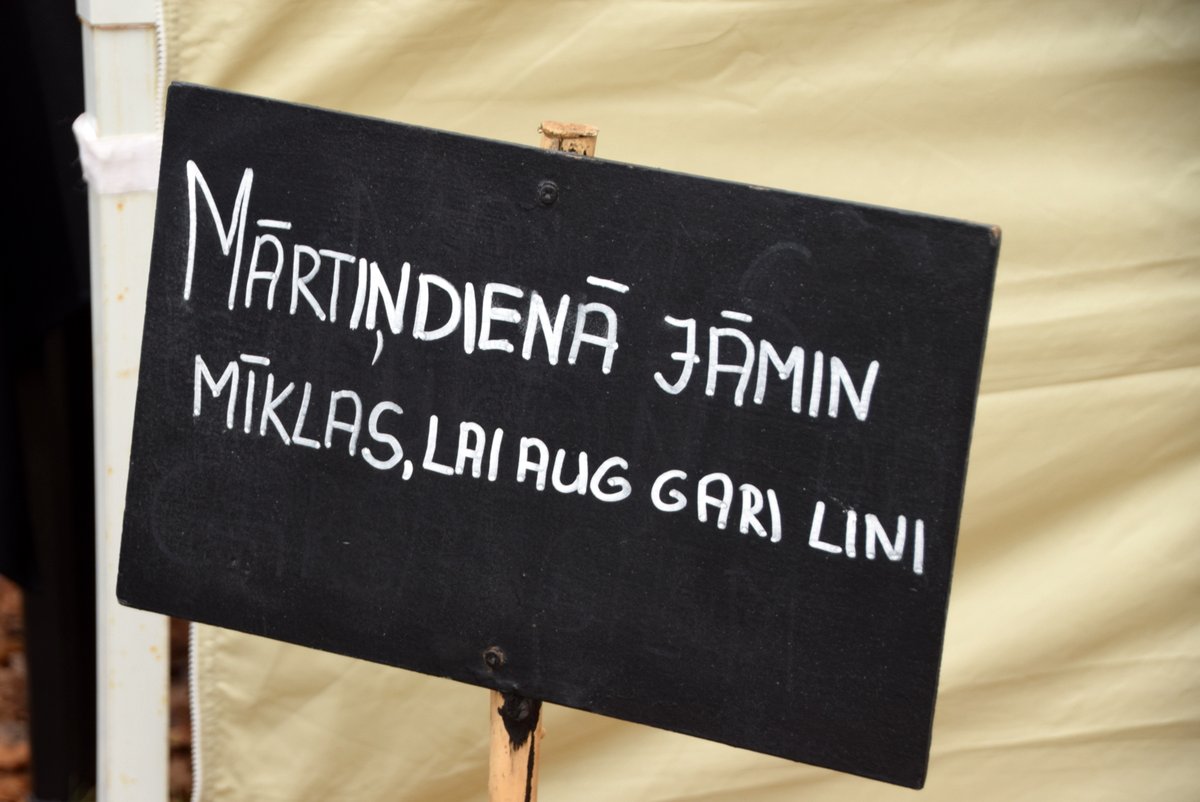 MĀRTIŅDIENĀ JĀMIN
MĪKLAS, LAI AUG GARI LINI